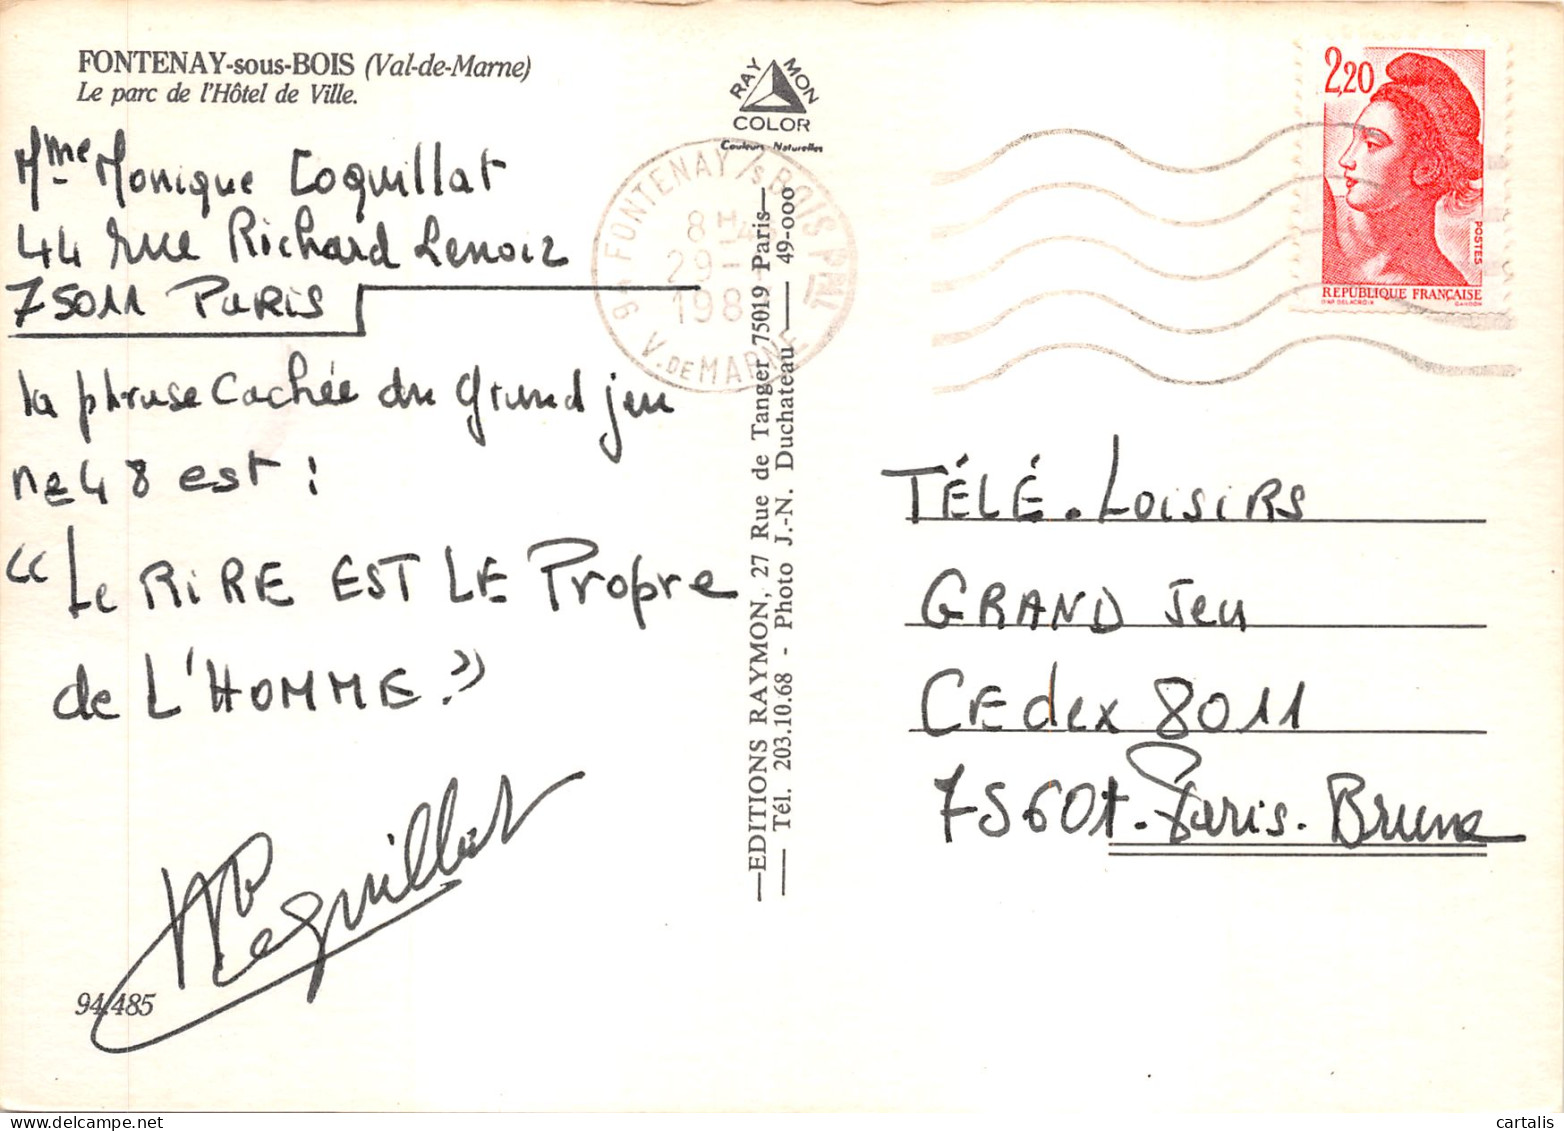 FONTENAY-sous-BOIS (Val-de-Marne)
Le parc de l'Hôtel de Ville.
Mme Monique Coquillat
44 rue Richard Lenoir
75011 PARIS
la phrase cachée du Grand jeu
ne 48 est :
“Le RiRE EST LE Propre
de L'HOMME.”
Coquillat
94.485
RAYMON
COLOR
Couleurs Naturelles
94 FONTENAY /S BOIS PPAL
8 H
29 -
198
V. DE MARNE
—EDITIONS RAYMON, 27 Rue de Tanger 75019 Paris—
— Tél. 203.10.68 - Photo J.-N. Duchateau — 49-000
2,20
POSTES
REPUBLIQUE FRANÇAISE
D'AP. DELACROIX GANDON
TÉLÉ.Loisirs
GRAND Jeu
CEdex 8011
75601-Paris-Brune
© cartalis
www.delcampe.net